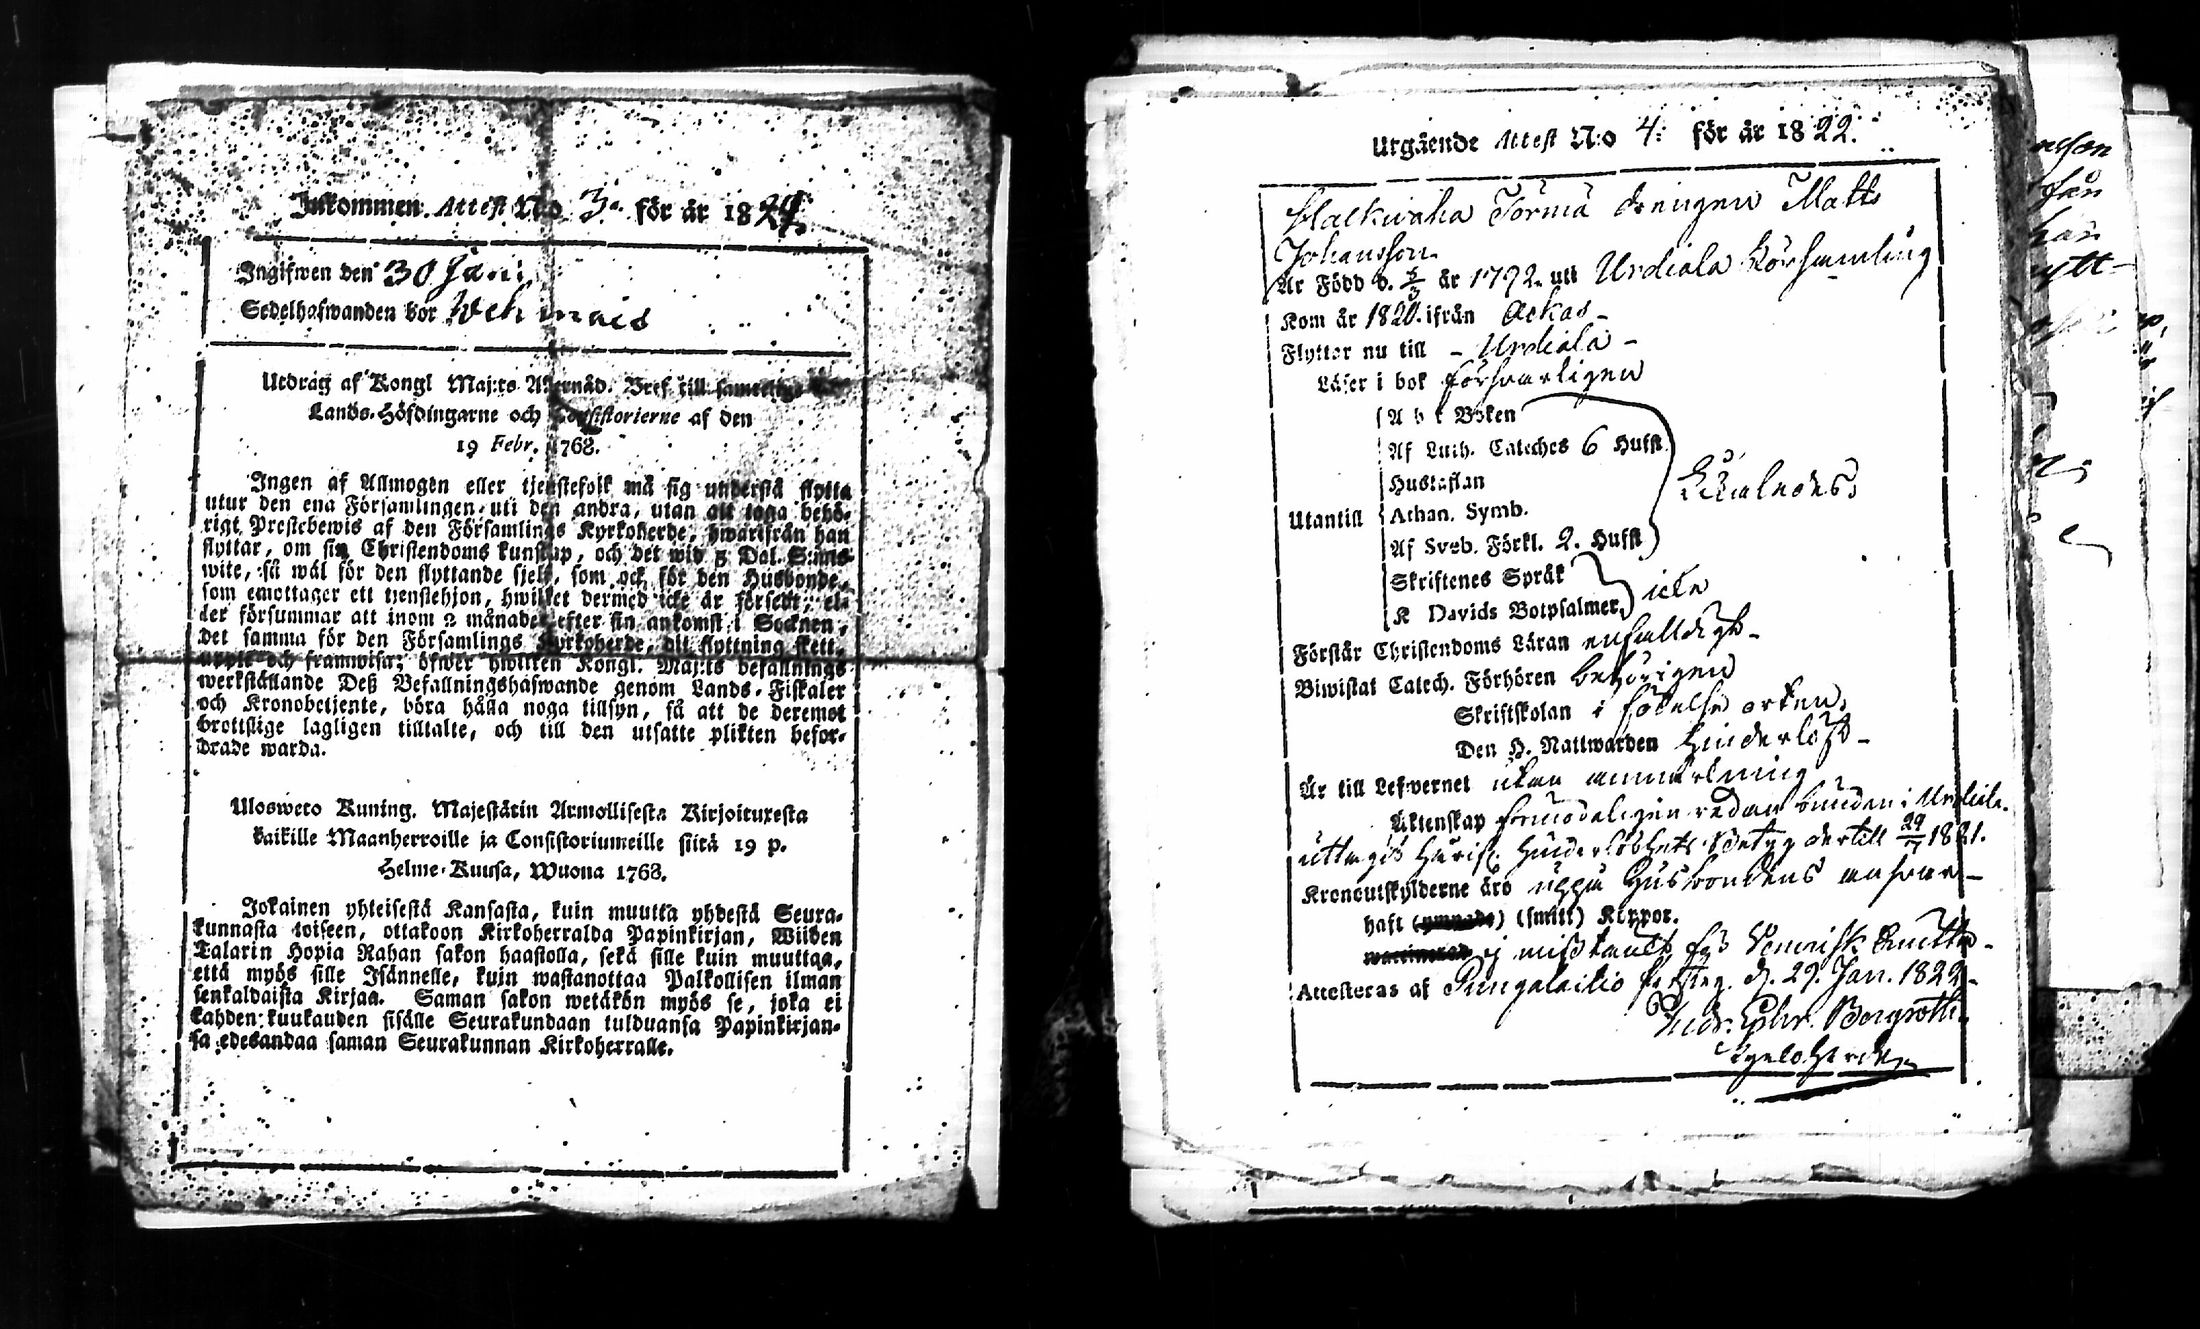 Inkommen Attest N:o 3. för år 1824.
Ingifwen den 30 Jan:
Sedelhafwanden bor Wehmais
Utdrag af Kongl Maj:ts Allernåd. Bref till samtelige
Lands-Höfdingarne och Consistorierne af den
19 Febr. 1768.
Ingen af Allmogen eller tjenstefolk må sig understå flytta
utur den ena Församlingen uti den andra, utan att taga behö-
rigt Prestebewis af den Församlings Kyrkoherde, hwarifrån han
flyttar, om sin Christendoms kunskap, och det wid 5 Dal. S:mts
wite, så wäl för den flyttande sjelf, som ock för den Husbonde,
som emottager ett tjenstehjon, hwilket dermed icke är försedt; el-
ler försummar att inom 2 månader efter sin ankomst i Socknen,
det samma för den Församlings Kyrkoherde, dit flyttning skett,
uppte och framwisa; öfwer hwilken Kongl. Maj:ts befallnings
werkställande Deß Befallningshafwande genom Lands-Fiskaler
och Kronobetjente, böra hålla noga tillsyn, så att de deremot
brottslige lagligen tilltalte, och till den utsatte plikten befor-
drade warda.
Ulosweto Kuning. Majestätin Armollisesta Kirjoituxesta
kaikille Maanherroille ja Consistoriumeille siitä 19 p.
Helme-Kuusa, Wuona 1768.
Jokainen yhteisestä Kansasta, kuin muutta yhdestä Seura-
kunnasta toiseen, ottakoon Kirkoherralda Papinkirjan, Wiiden
Talarin Hopia Rahan sakon haastolla, sekä sille kuin muuttaa,
että myös sille Isännelle, kuin wastanottaa Palkollisen ilman
senkaldaista Kirjaa. Saman sakon wetäkön myös se, joka ei
kahden kuukauden sisälle Seurakundaan tulduansa Papinkirjan-
sa edesandaa saman Seurakunnan Kirkoherralle.
Utgående Attest N:o 4: för år 1822.
Törmä drengen Matts
Johansson
Är Född d. 5/3 år 1792. uti Urdiala Församling
Kom år 1820. ifrån Ackas
Flyttar nu till - Urdiala -
Läser i bok försvarligen
A b c Boken
Af Luth. Cateches 6 Hufst.
Hustaflan
Utantill Athan. Symb.
Af Sveb. Förkl. 2. Hufst
Skriftenes Språk
K Davids Botpsalmer, icke
Förstår Christendoms Läran enfaldigt -
Biwistat Catech. Förhören behörigen
Skriftskolan i födelse orten,
Den H. Nattwarden hinderlöst -
Är till Lefwernet utan anmärkning
Äktenskap förmodeligen redan bunden i Urdiala.
uttagit härifr. hinderlöshets Betyg dertill 29/7 1821.
Kronoutskylderne äro uppå Husbondens ansvar -
haft (smitt) Koppor.
Attesteras af Pungalaitio d. 29. Jan. 1822 -
Bergroth
Kyrkoherde